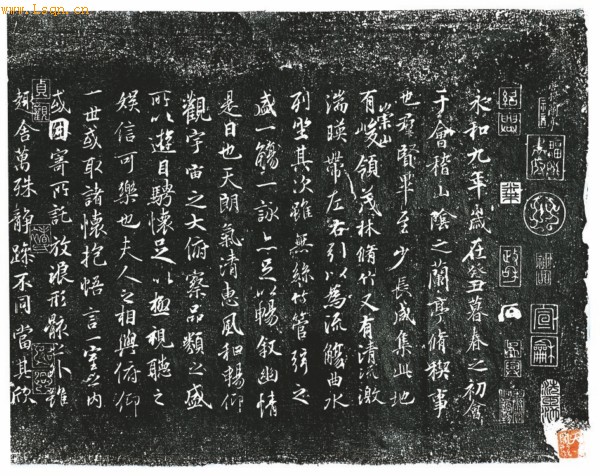 www.lsqn.cn
永和九年歲在癸丑暮春之初會
于會稽山陰之蘭亭脩稧事
也群賢畢至少長咸集此地
有崇山峻領茂林脩竹又有清流激
湍暎帶左右引以為流觴曲水
列坐其次雖無絲竹管弦之
盛一觴一詠亦足以暢叙幽情
是日也天朗氣清惠風和暢仰
觀宇宙之大俯察品類之盛
所以遊目騁懷足以極視聽之
娛信可樂也夫人之相與俯仰
一世或取諸懷抱悟言一室之內
或因寄所託放浪形骸之外雖
趣舍萬殊靜躁不同當其欣
貞觀